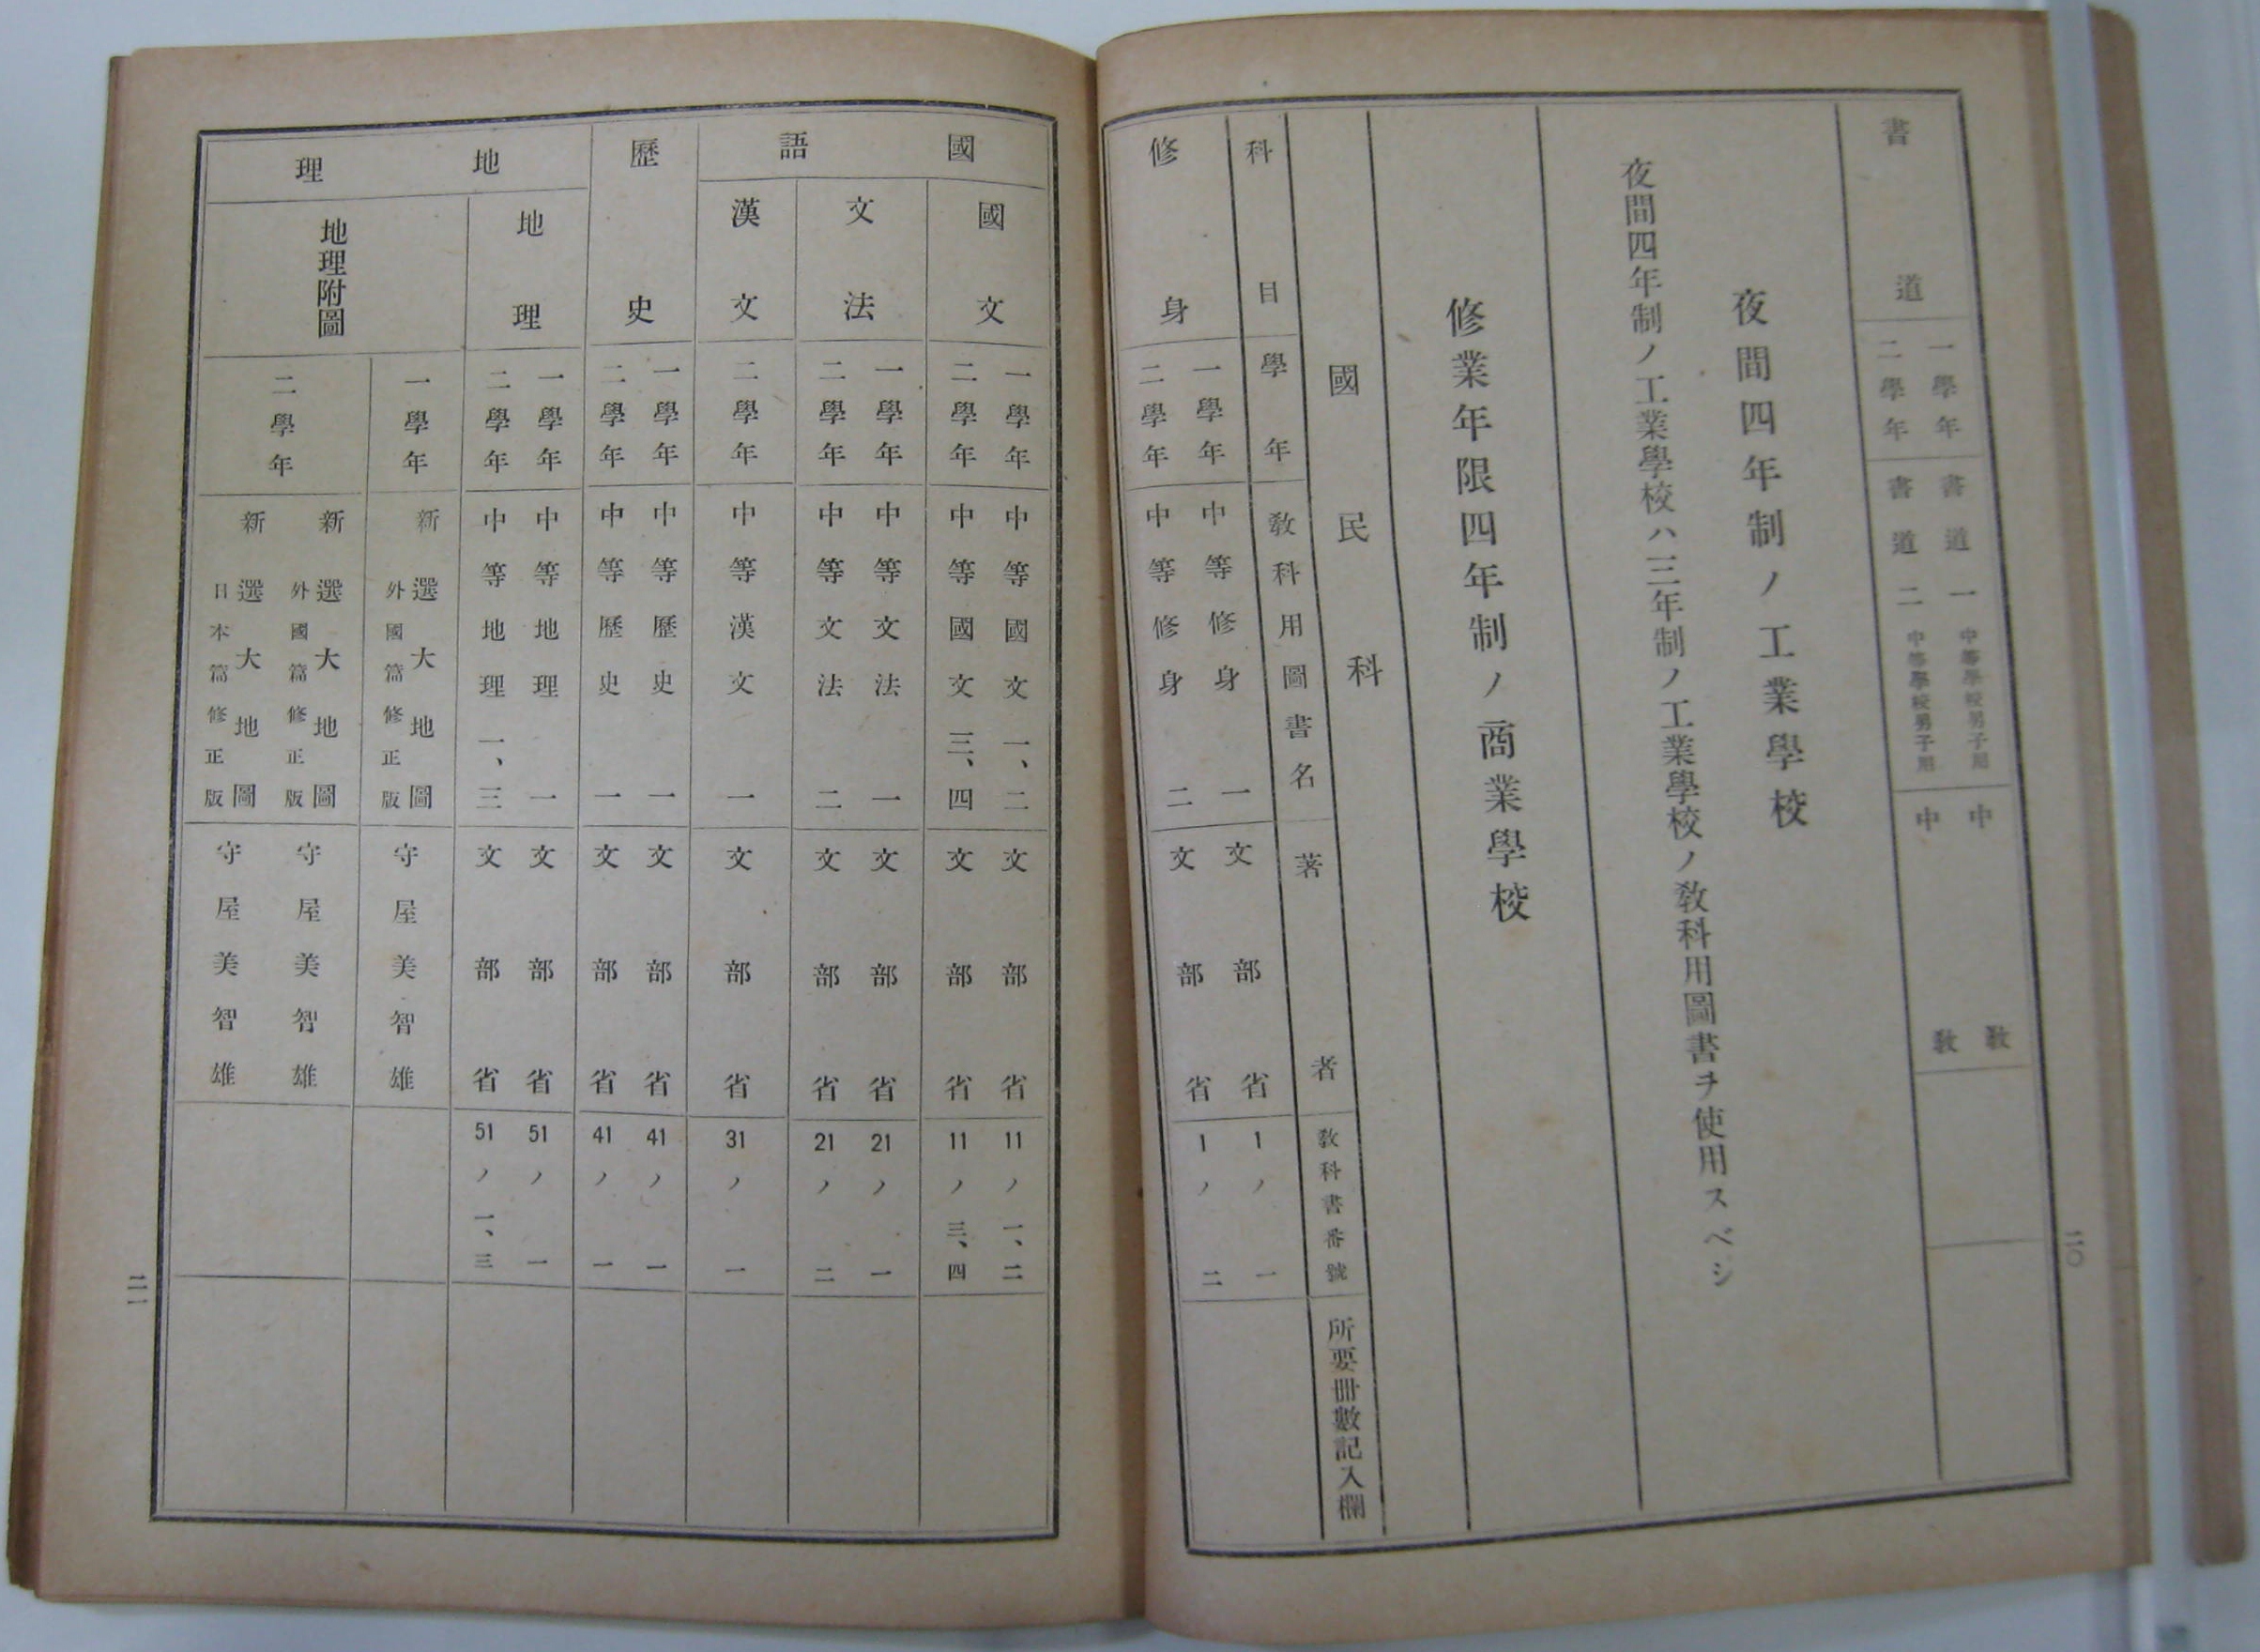 書道
一學年 書道 一 中等學校男子用 中 教
二學年 書道 二 中等學校男子用 中 教
夜間四年制ノ工業學校
夜間四年制ノ工業學校ハ三年制ノ工業學校ノ教科用圖書ヲ使用スベシ
修業年限四年制ノ商業學校
國民科
科目 學年 教科用圖書名 著者 教科書番號 所要冊數記入欄
修身
一學年 中等修身 一 文部省 1ノ一
二學年 中等修身 二 文部省 1ノ二
二〇
國語
國文
一學年 中等國文 一、二 文部省 11ノ一、二
二學年 中等國文 三、四 文部省 11ノ三、四
文法
一學年 中等文法 一 文部省 21ノ一
二學年 中等文法 二 文部省 21ノ二
漢文
二學年 中等漢文 一 文部省 31ノ一
歷史
一學年 中等歷史 一 文部省 41ノ一
二學年 中等歷史 一 文部省 41ノ一
地理
地理
一學年 中等地理 一 文部省 51ノ一
二學年 中等地理 一、三 文部省 51ノ一、三
地理附圖
一學年 新選大地圖 外國篇修正版 守屋美智雄
二學年 新選大地圖 外國篇修正版 守屋美智雄
新選大地圖 日本篇修正版 守屋美智雄
二一